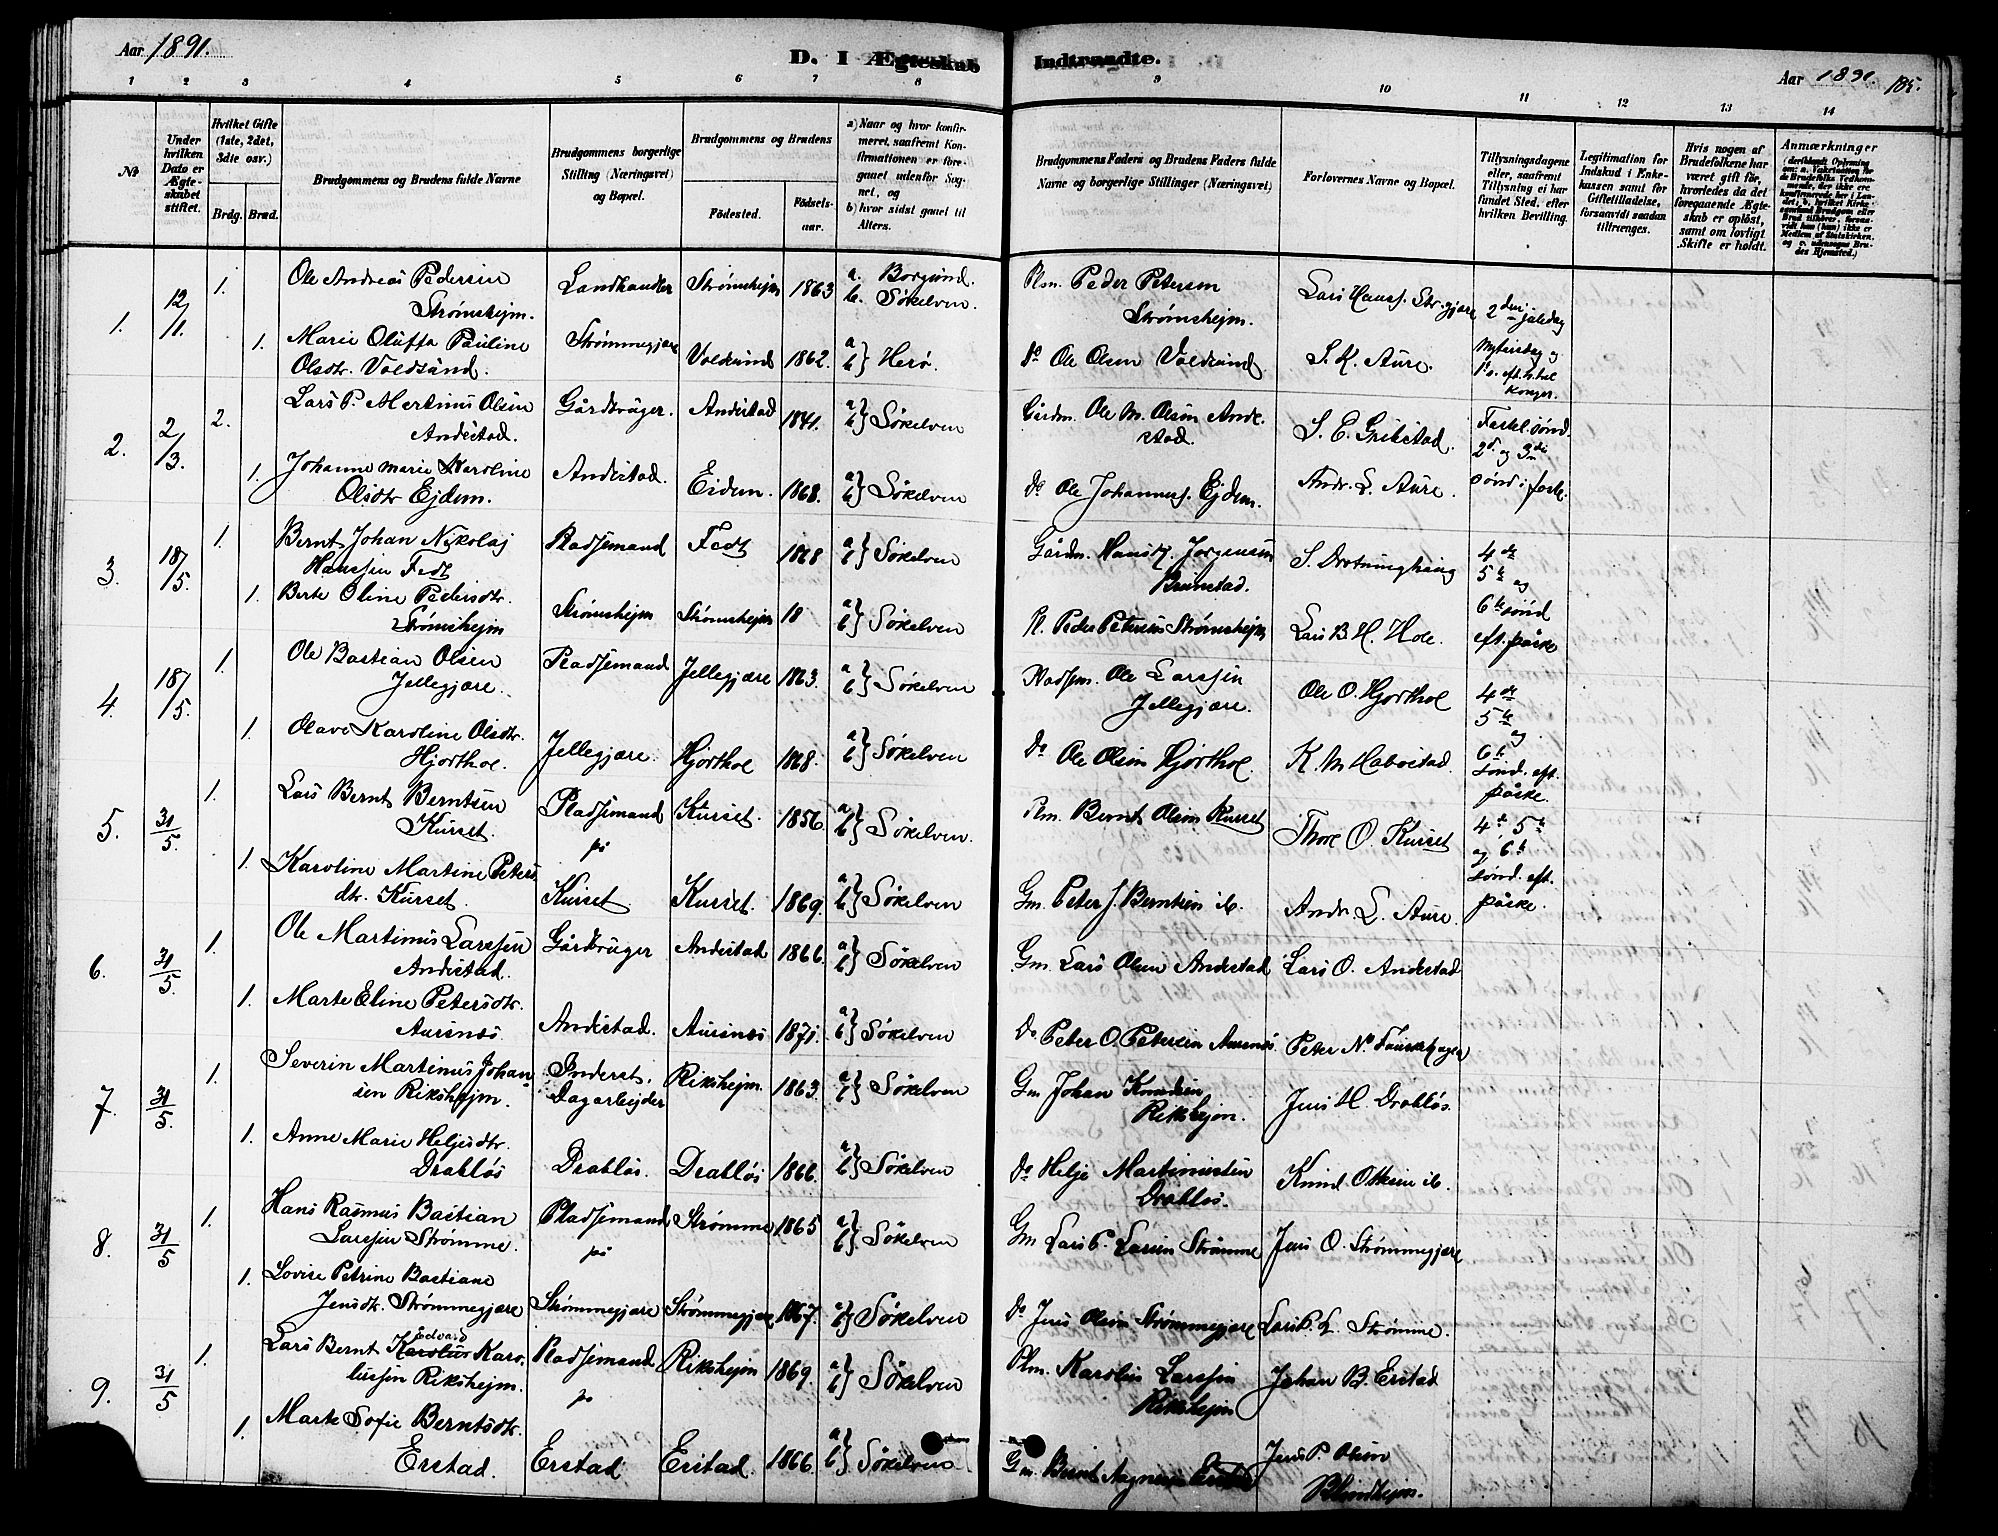 Aar 1891.
D. I Ægteskab Indtraadte.
Aar 1891.
185.
1 2 3 4 5 6 7 8 9 10 11 12 13 14
No
Under hvilken Dato er Ægteskabet stiftet.
Hvilket Gifte (1ste, 2det, 3die osv.)
Brdg. Brud.
Brudgommens og Brudens fulde Navne
Brudgommens borgerlige Stilling (Næringsvei) og Bopæl.
Brudgommens og Brudens
Fødested.
Fødselsaar.
a) Naar og hvor konfirmeret, saafremt Konfirmationen er foregaaet udenfor Sognet, og
b) hvor sidst gaaet til Alters.
Brudgommens Faders og Brudens Faders fulde Navne og borgerlige Stillinger (Næringsvei)
Forlovernes Navne og Bopæl.
Tillysningsdagene eller, saafremt Tillysning ei har fundet Sted, efter hvilken Bevilling.
Legitimation for Indskud i Enkekassen samt for Giftetilladelse, forsaavidt saadan tiltrænges.
Hvis nogen af Brudefolkene har været gift før, hvorledes da det foregaaende Ægteskab er opløst, samt om lovligt Skifte er holdt.
Anmærkninger
1. 12/1. 1. Ole Andreas Pedersen Strømshejm. Landhandler Strømshejm 1863 a. Borgund. b. Søkelven. Plm. Peder Petersen Strømshejm. Lars Hanss. Str.gjære 2den juledag
1. Marie Oluffa Pauline Olsdtr. Voldsund. Strømmegjære Voldsund 1862. a b} Herø. do Ole Olsen Voldsund S. K. Aure. Nytaarsdag og
2. 2/3. 2. Lars P. Martinus Olsen Andestad. Gårdbruger. Andestad 1841. a b} Søkelven Gårdm. Ole M. Olsen Andestad. S. E. Gribstad. Fastel. sønd. 2d. og 3die
1. Johanne Marie Karoline Olsdtr Ejdem. Andestad. Eidem. 1868. a b} Søkelven Do Ole Johanness. Ejdem. Andr. L. Aure. sønd i faste.
3. 18/5. 1. Bernt Johan Nikolaj Hanssen Fedt Pladsemand Fedt 1868 a b} Søkelven Gårdm. Hans J. Jørgensen Brunstad. S. Drotninghaug 4de 5te og
1. Berte Oline Pedersdtr. Strømshejm Strømshejm Strømshejm 18 a b} Søkelven Pl. Peder Petersen Strømshejm Lars B. H. Hole. 6te sønd eft. påske
4. 18/5. 1. Ole Bastian Olsen Jellegjære. Pladsemand Jellegjære 1863. a b} Søkelven Pladsm. Ole Larssen Jellegjære. Ole O. Hjorthol 4de 5te og
1. Olave Karoline Olsdtr. Hjorthol. Jellegjære. Hjorthol 1868. a b} Søkelven Do Ole Olsen Hjorthol. K. M. Habostad. 6te Sønd. eft. påske.
5. 31/5. 1. Lars Bernt Berntsen Kurset. Pladsemand på Kurset. 1856. a b} Søkelven. Plm. Bernt Olsen Kurset Thore O. Kurset 4de 5te og 6te
1. Karoline Martine Petersdtr. Kurset. Kurset Kurset. 1869. a b} Søkelven Gm. Peter J. Berntsen ib. Andr. L. Aure. sønd. eft. påske.
6. 31/5. 1. Ole Martinus Larssen Andestad. Gårdbruger Andestad 1866. a b} Søkelven Gm. Lars Olsen Andestad Lars O. Andestad
1. Marte Eline Petersdtr. Aursnes Andestad. Aursnes 1871. a b} Søkelven Do Peter O. Petersen Aursnes. Peter N.
7. 31/5. 1. Severin Martinus Johansen Rikshejm. Inderst, Dagarbejder Rikshejm. 1863. a b} Søkelven Gm Johan Knudsen Rikshejm. Jens H. Drabløs.
1. Anne Marie Heljesdtr. Drabløs Drabløs. Drabløs 1866. a b} Søkelven Do Helje Martinussen Drabløs. Knud Ottesen ib.
8. 31/5 1. Hans Rasmus Bastian Larssen Strømme. Pladsemand på Strømme 1865 a b} Søkelven Gm Lars P. Larsen Strømme Jens O. Strømmegjære
1. Lovise Petrine Bastiane Jensdtr. Strømmegjære Strømmegjære Strømmegjære 1867. a b} Søkelven Do Jens Olsen Strømmegjære Lars P. L. Strømme.
9. 31/5 1. Lars Bernt Edvard Karolus Karolussen Rikshejm. Pladsemand på Rikshejm 1869. a b} Søkelven Plm. Karolus Larssen Rikshejm Johan B. Erstad
1. Marte Sofie Berntsdtr. Erstad. Erstad Erstad. 1866. a b} Søkelven Gm. Bernt Erstad Jens P. Olsen Blindhejm.